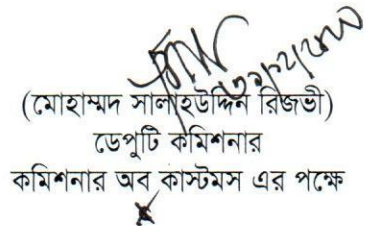 (মোহাম্মদ সালাহউদ্দিন রিজভী)
ডেপুটি কমিশনার
কমিশনার অব কাস্টমস এর পক্ষে